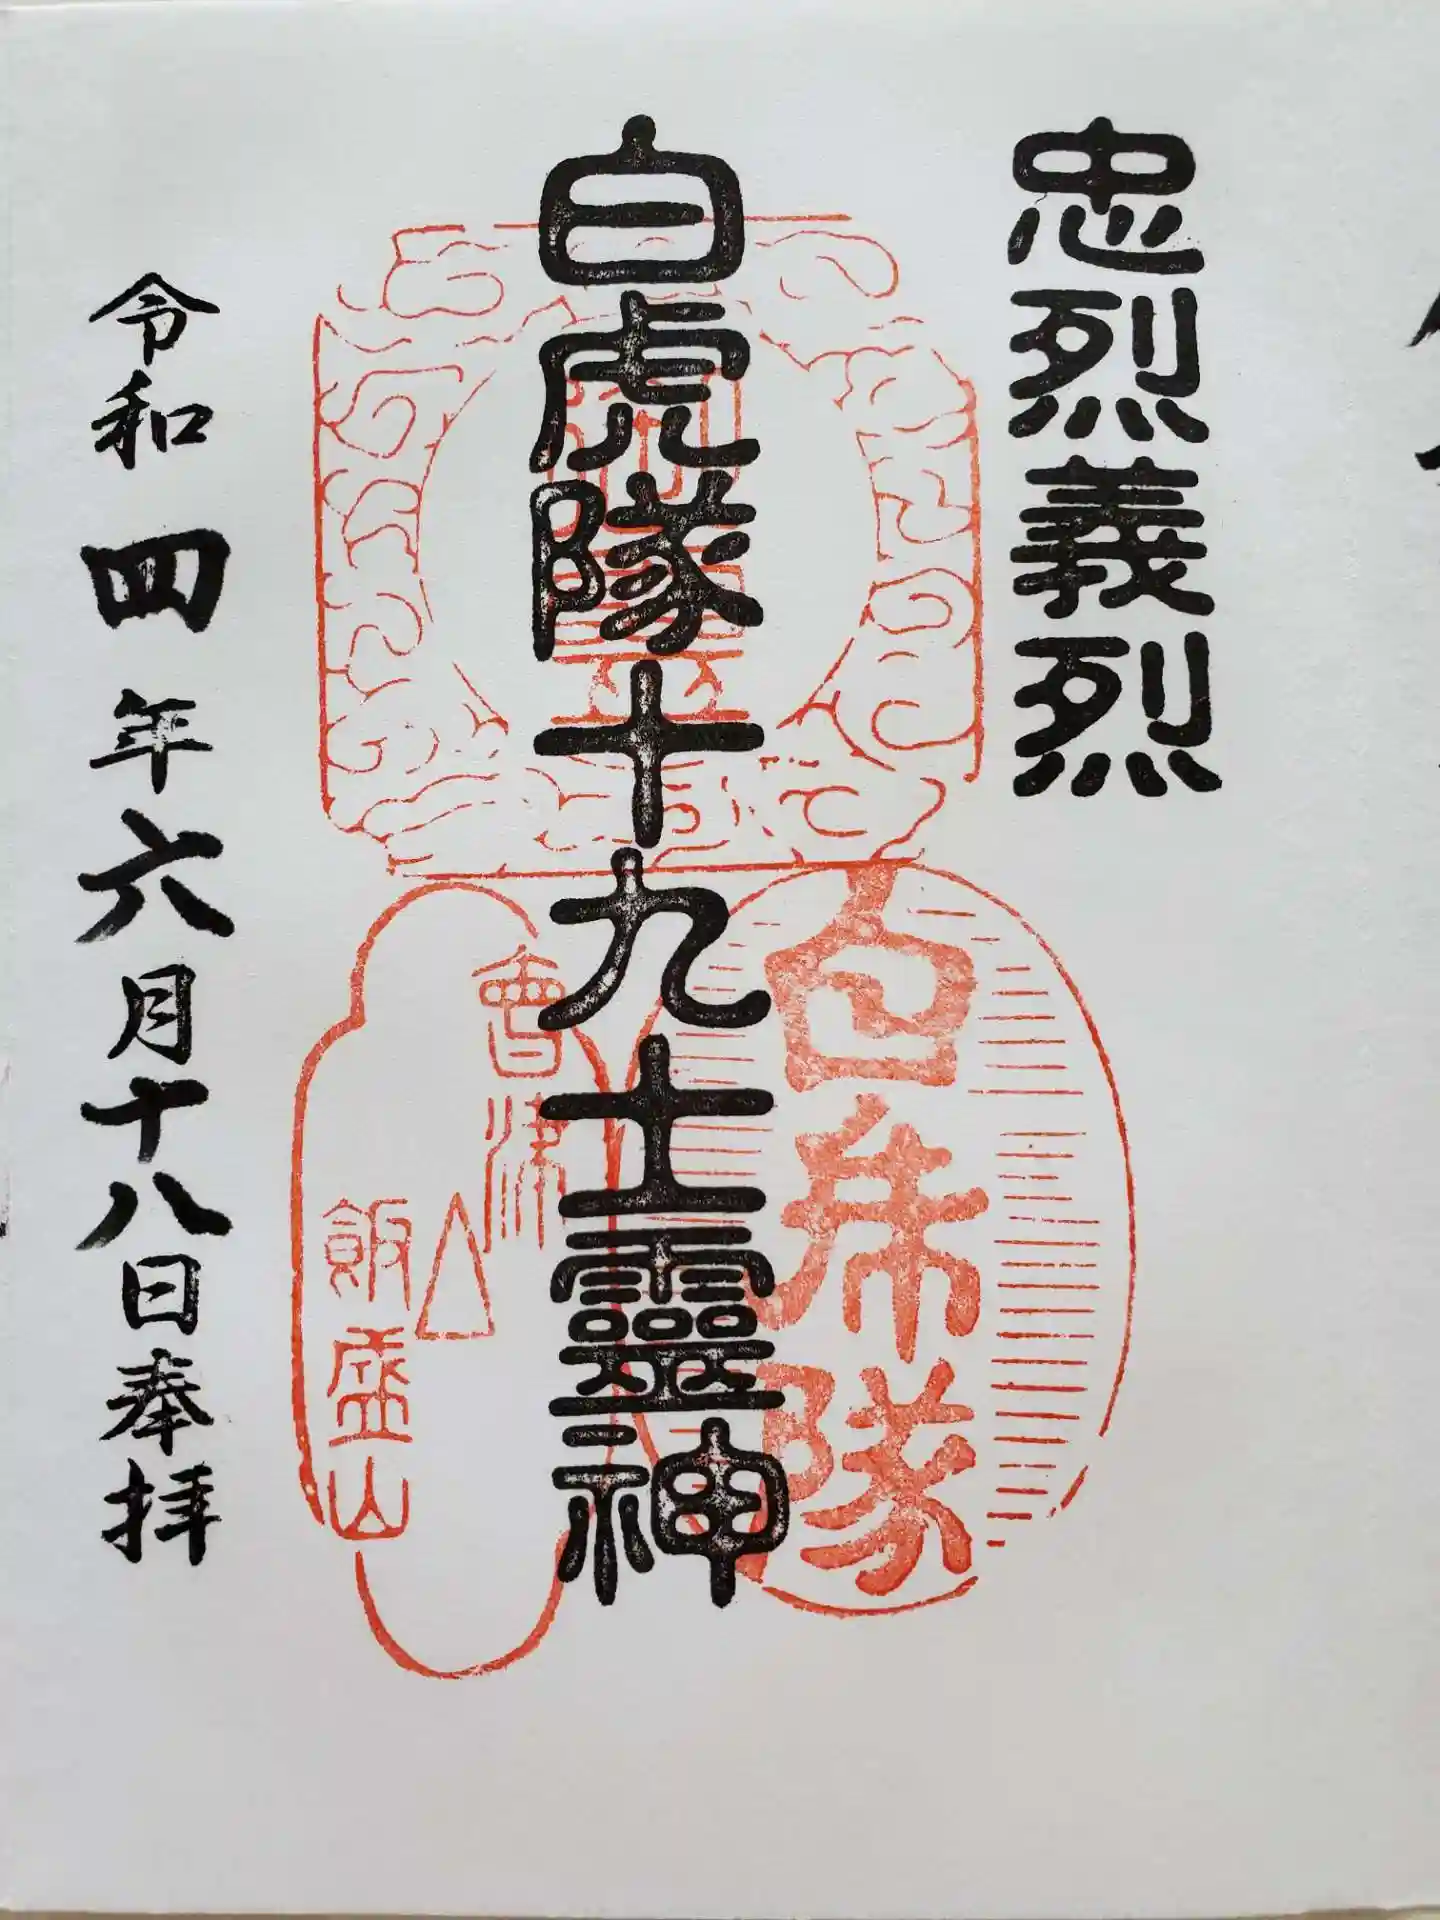 忠烈義烈
白虎隊十九士霊神
白虎隊
會津
飯盛山
令和四年六月十八日奉拝